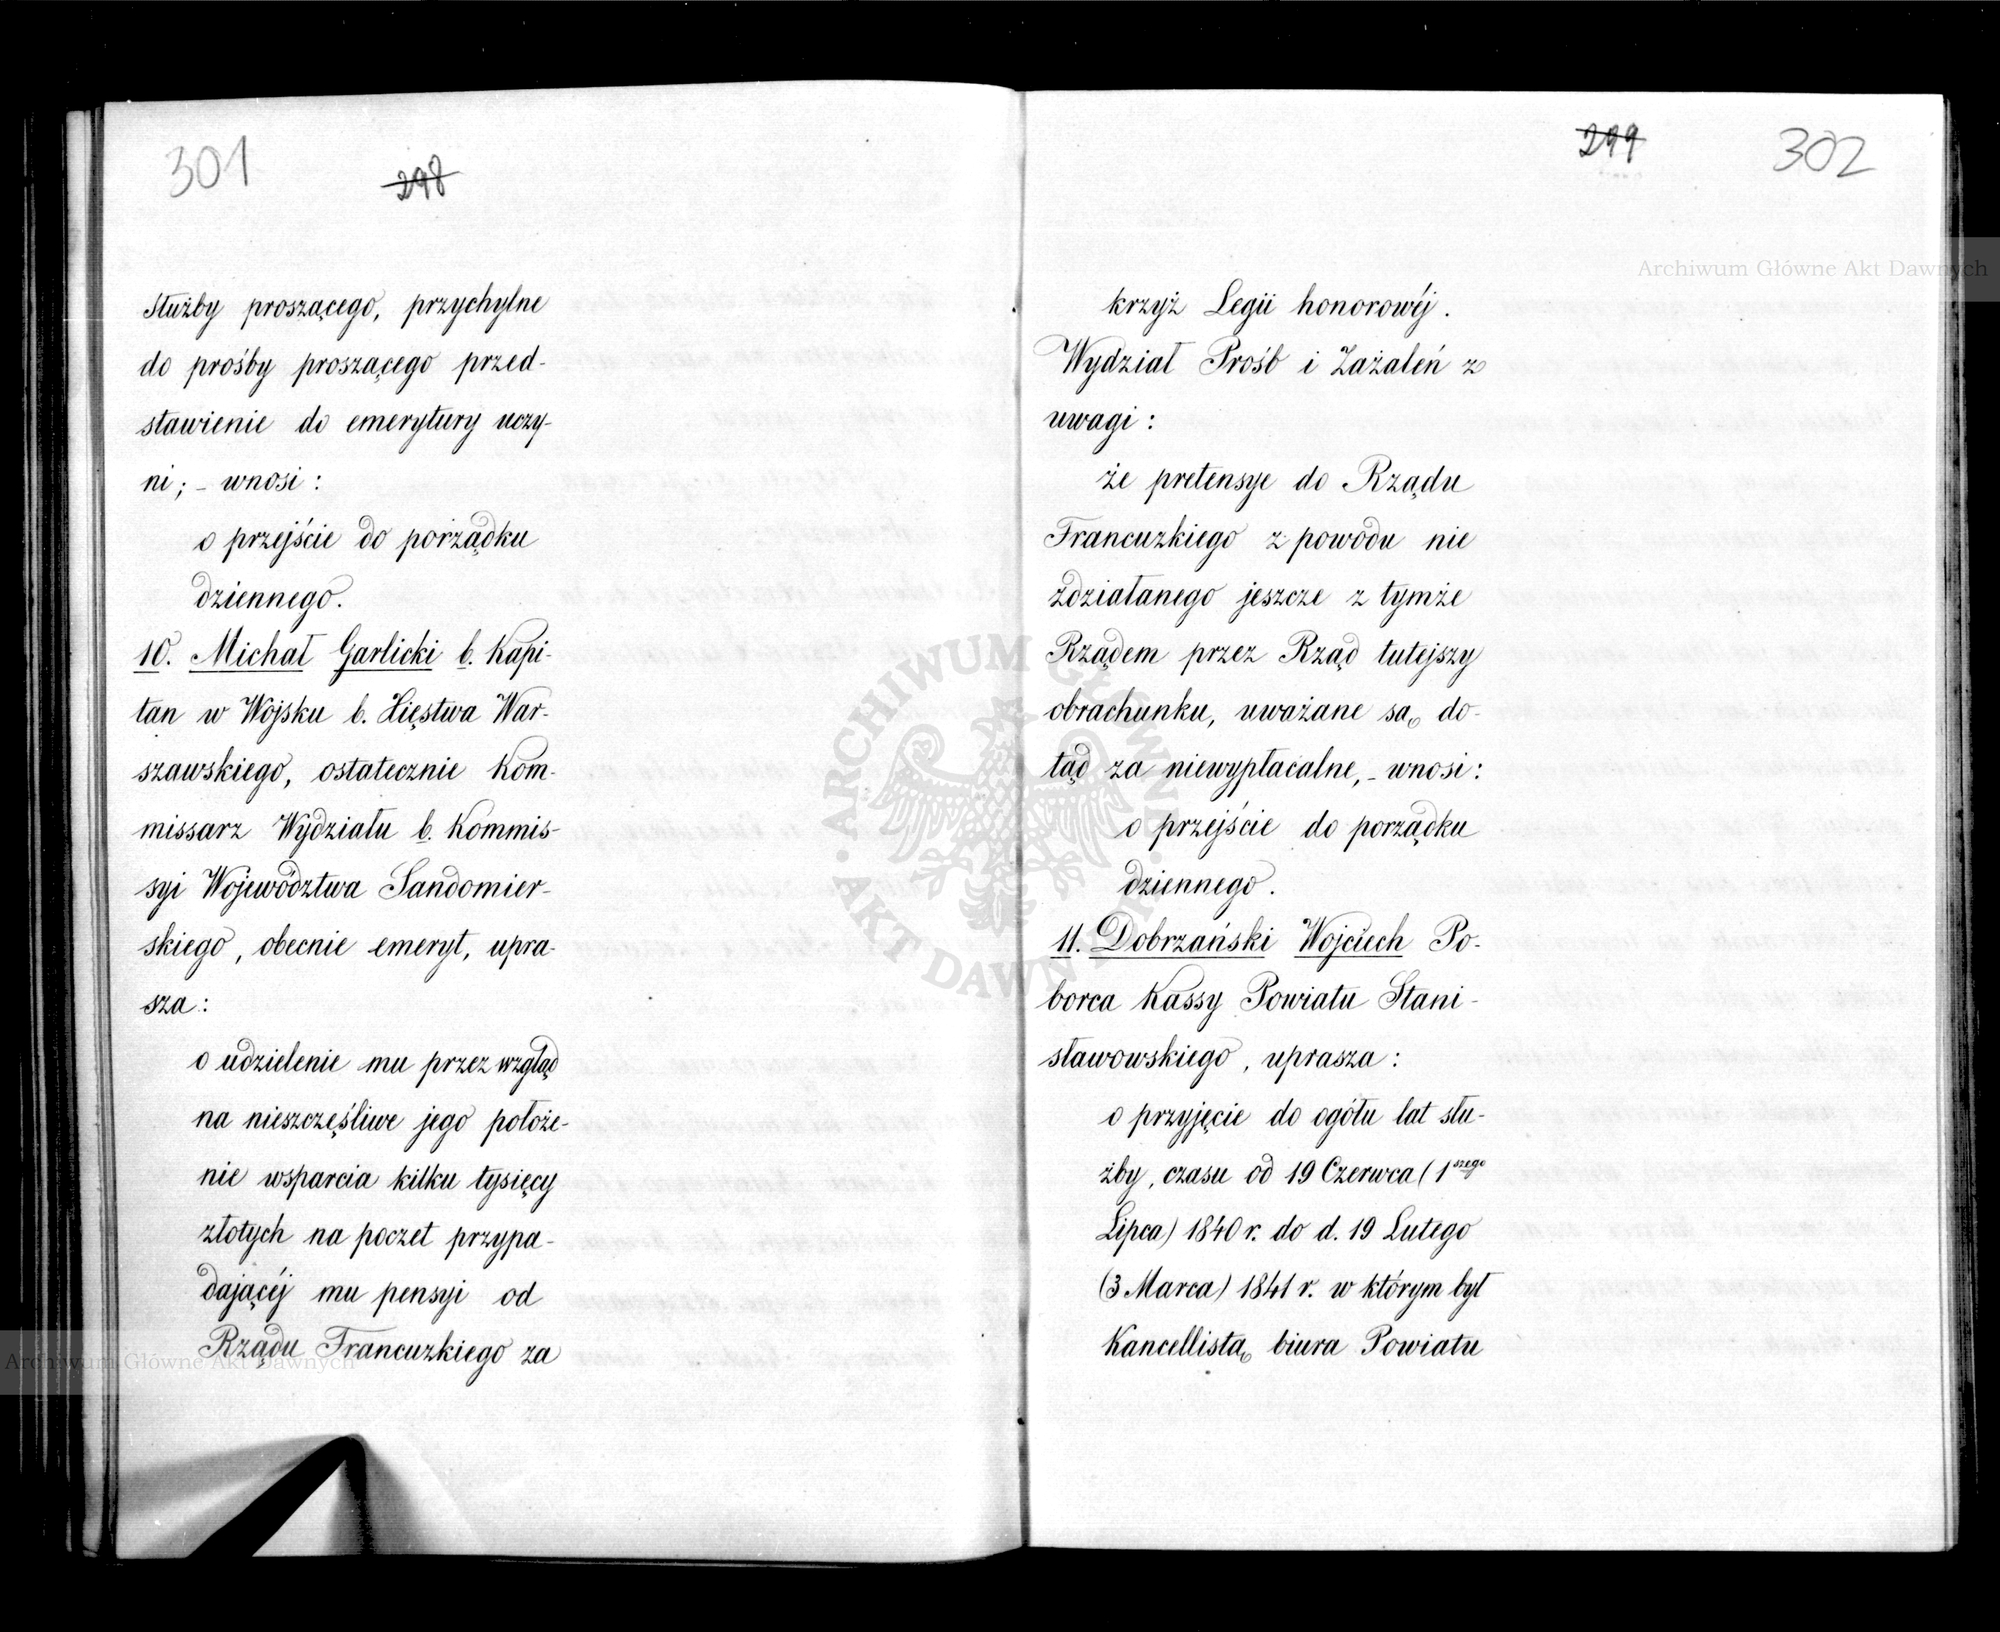 301
298
służby proszącego, przychylne
do prośby proszącego przed-
stawienie do emerytury uczy-
ni; - wnosi:
o przejście do porządku
dziennego.
10. Michał Garlicki b. Kapi-
tan w Wojsku b. Xięstwa War-
szawskiego, ostatecznie Kom-
missarz Wydziału b. Kommis-
syi Województwa Sandomier-
skiego, obecnie emeryt, upra-
sza:
o udzielenie mu przez wzgląd
na nieszczęśliwe jego położe-
nie wsparcia kilku tysięcy
złotych na poczet przypa-
dającéj mu pensyi od
Rządu Francuzkiego za
299
302
krzyż Legii honorowéj.
Wydział Prośb i Zażaleń z
uwagi:
że pretensye do Rządu
Francuzkiego z powodu nie
zdziałanego jeszcze z tymże
Rządem przez Rząd tutejszy
obrachunku, uważane są do-
tąd za niewypłacalne, - wnosi:
o przejście do porządku
dziennego.
11. Dobrzański Wojciech Po-
borca Kassy Powiatu Stani-
sławowskiego, uprasza:
o przyjęcie do ogółu lat słu-
żby, czasu od 19 Czerwca (1szego
Lipca) 1840 r. do d. 19 Lutego
(3 Marca) 1841 r. w którym był
Kancellistą biura Powiatu
Archiwum Główne Akt Dawnych
Archiwum Główne Akt Dawnych
ARCHIWUM GŁÓWNE AKT DAWNYCH